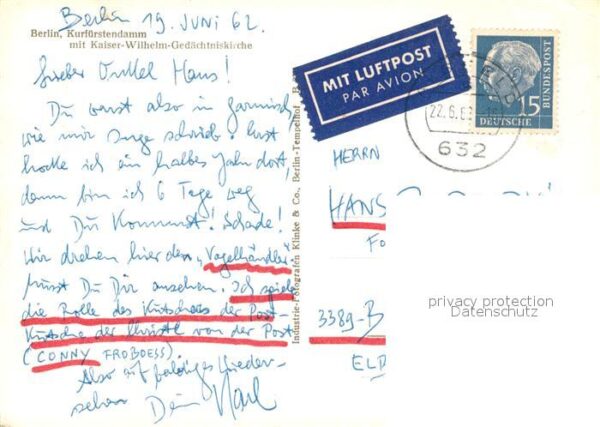 Berlin 19. JUNI 62.
Berlin, Kurfürstendamm
mit Kaiser-Wilhelm-Gedächtniskirche
Lieber Onkel Hans!
Du warst also in Garmisch,
wie mir Inge schrieb. Erst
hocke ich ein halbes Jahr dort,
dann bin ich 6 Tage weg
und Du kommst! Schade!
Wir drehen hier den „Vogelhändler"
musst Du Dir ansehen. Ich spiele
die Rolle des Kutschers der Post-
kutsche der Christl von der Post
(CONNY FROBOESS).
Also auf baldiges Wieder-
sehen Dein
Industrie-Fotografen Klinke & Co., Berlin-Tempelhof
MIT LUFTPOST
PAR AVION
15
DEUTSCHE
BUNDESPOST
22.6.62
632
HERRN
HANS
3389-B
privacy protection
Datenschutz